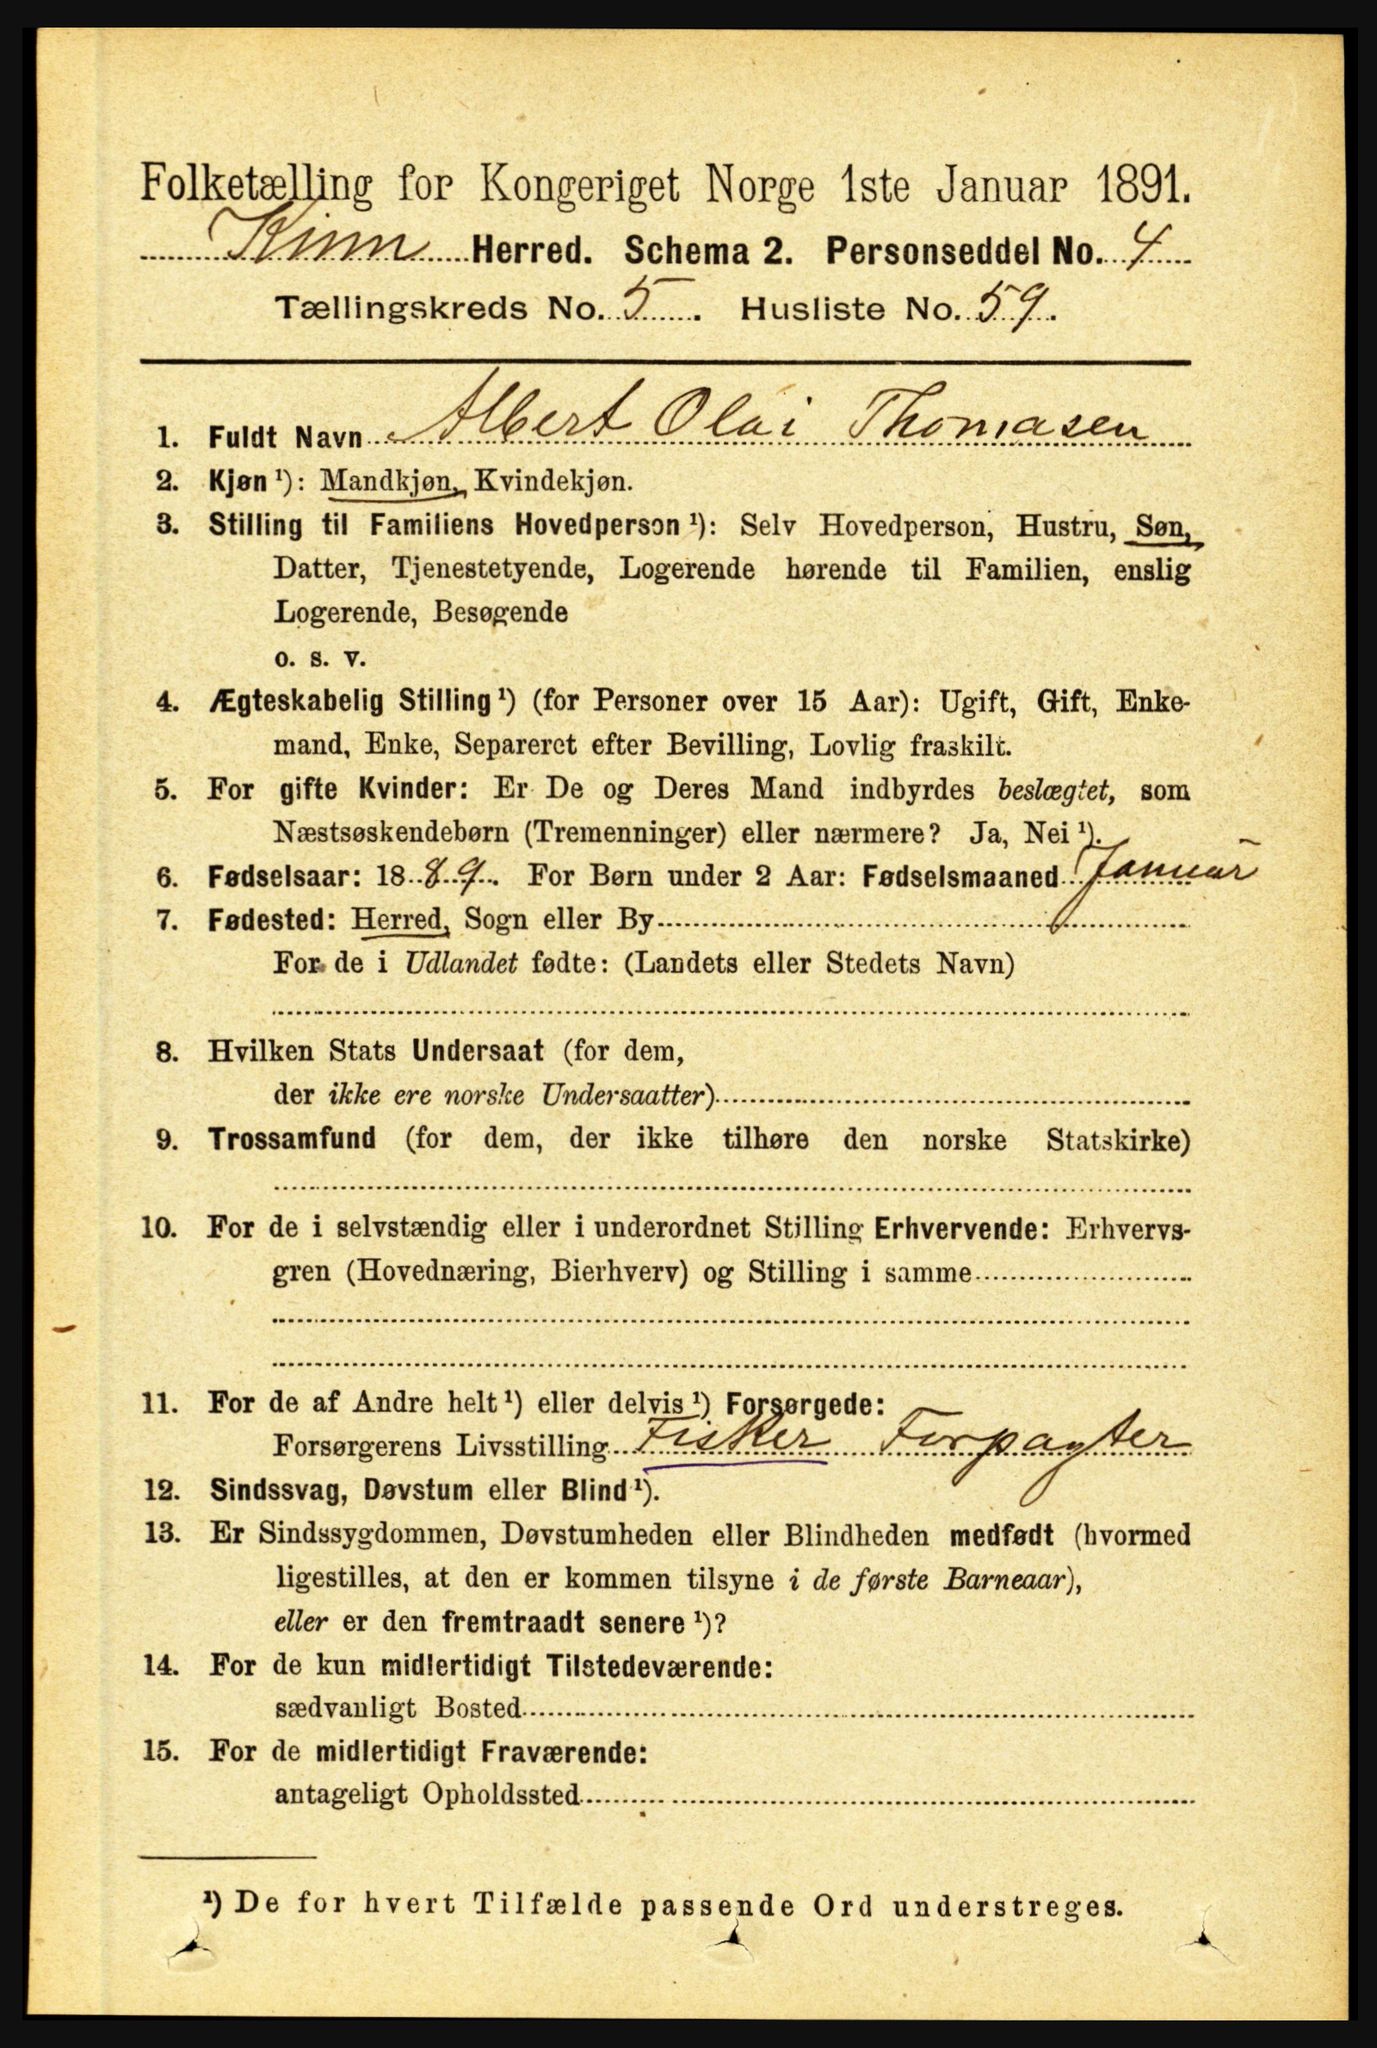 Folketælling for Kongeriget Norge 1ste Januar 1891.
Kinn Herred. Schema 2. Personseddel No. 4
Tællingskreds No. 5. Husliste No. 59.
1. Fuldt Navn Albert Olai Thomasen
2. Kjøn ¹): Mandkjøn, Kvindekjøn.
3. Stilling til Familiens Hovedperson ¹): Selv Hovedperson, Hustru, Søn,
Datter, Tjenestetyende, Logerende hørende til Familien, enslig
Logerende, Besøgende
o. s. v.
4. Ægteskabelig Stilling ¹) (for Personer over 15 Aar): Ugift, Gift, Enke-
mand, Enke, Separeret efter Bevilling, Lovlig fraskilt.
5. For gifte Kvinder: Er De og Deres Mand indbyrdes beslægtet, som
Næstsøskendebørn (Tremenninger) eller nærmere? Ja, Nei ¹).
6. Fødselsaar: 1889. For Børn under 2 Aar: Fødselsmaaned Januar
7. Fødested: Herred, Sogn eller By
For de i Udlandet fødte: (Landets eller Stedets Navn)
8. Hvilken Stats Undersaat (for dem,
der ikke ere norske Undersaatter)
9. Trossamfund (for dem, der ikke tilhøre den norske Statskirke)
10. For de i selvstændig eller i underordnet Stilling Erhvervende: Erhvervs-
gren (Hovednæring, Bierhverv) og Stilling i samme
11. For de af Andre helt ¹) eller delvis ¹) Forsørgede:
Forsørgerens Livsstilling Fisker Forpagter
12. Sindssvag, Døvstum eller Blind ¹).
13. Er Sindssygdommen, Døvstumheden eller Blindheden medfødt (hvormed
ligestilles, at den er kommen tilsyne i de første Barneaar),
eller er den fremtraadt senere ¹)?
14. For de kun midlertidigt Tilstedeværende:
sædvanligt Bosted
15. For de midlertidigt Fraværende:
antageligt Opholdssted
¹) De for hvert Tilfælde passende Ord understreges.